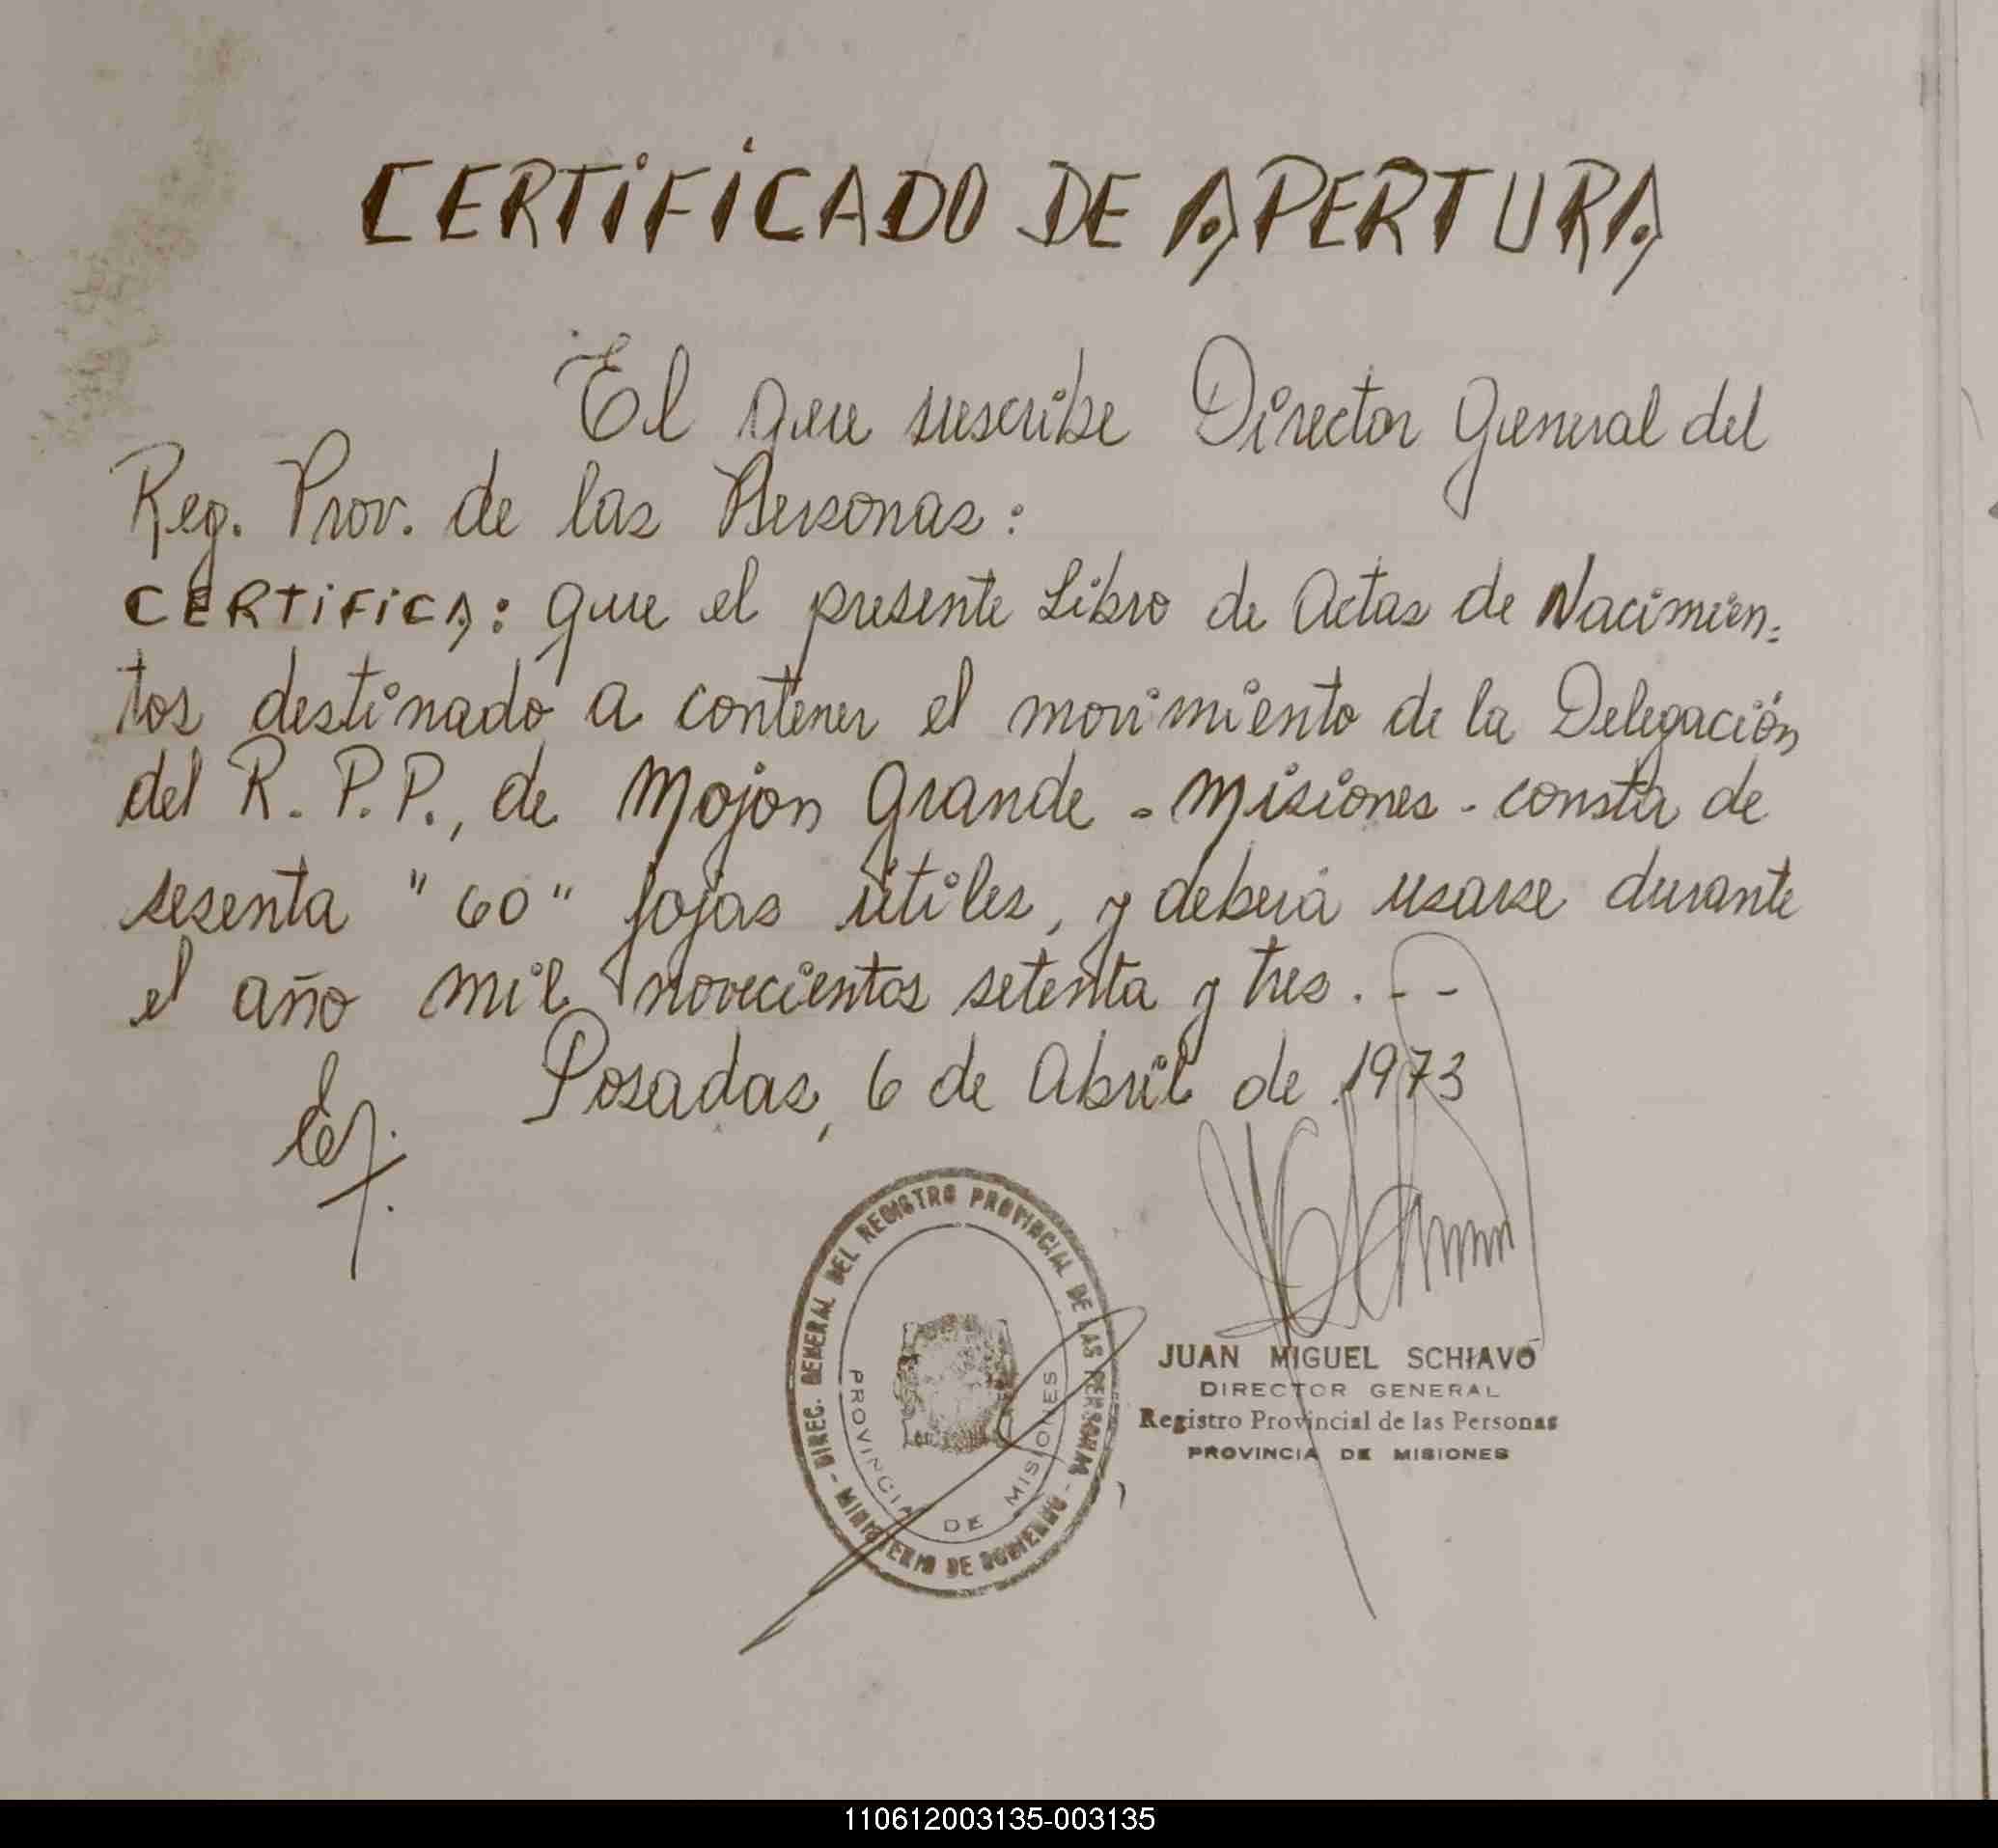 CERTIFICADO DE APERTURA
El que suscribe Director General del
Reg. Prov. de las Personas:
CERTIFICA: que el presente Libro de Actas de Nacimien=
tos destinado a contener el movimiento de la Delegación
del R. P. P., de Mojon Grande - Misiones - consta de
sesenta "60" fojas útiles, y deberá usarse durante
el año mil novecientos setenta y tres. - -
Posadas, 6 de Abril de 1973
DIREC. GENERAL DEL REGISTRO PROVINCIAL DE LAS PERSONAS
- MINISTERIO DE GOBIERNO -
PROVINCIA DE MISIONES
JUAN MIGUEL SCHIAVO
DIRECTOR GENERAL
Registro Provincial de las Personas
PROVINCIA DE MISIONES
110612003135-003135